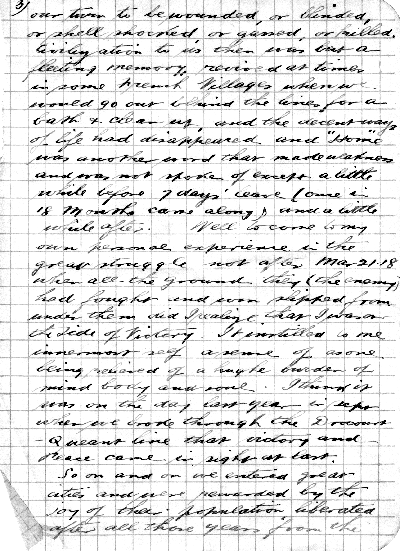 3)
our turn to be wounded, or blinded,
or shell shocked, or gassed, or killed.
Civilization to us then was but a
fleeting memory, revived at times
in some French Villages when we
would go out behind the lines for a
bath & clean up, and the decent ways
of life had disappeared and "Home"
was another word that made weakness
and was not spoke of except a little
while before 7 days leave (once in
18 Months came along) and a little
while after. Well to come to my
own personal experience in the
great struggle not after Mar-21-18
when all the ground they (the enemy)
had fought and won slipped from
under them did I realize that I was on
the side of Victory. It instilled to me
innermost self a sense of as one
being relieved of a huge burden of
mind body and soul. I think it
was on the day last year in sept
when we broke through the Drocourt
- Queant line that victory and
Peace came in sight at last.
So on and on we entered great
cities and were rewarded by the
joy of their population liberated
after all those years from the